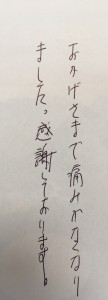 おかげさまで痛みがなくなり
ました。感謝しております。